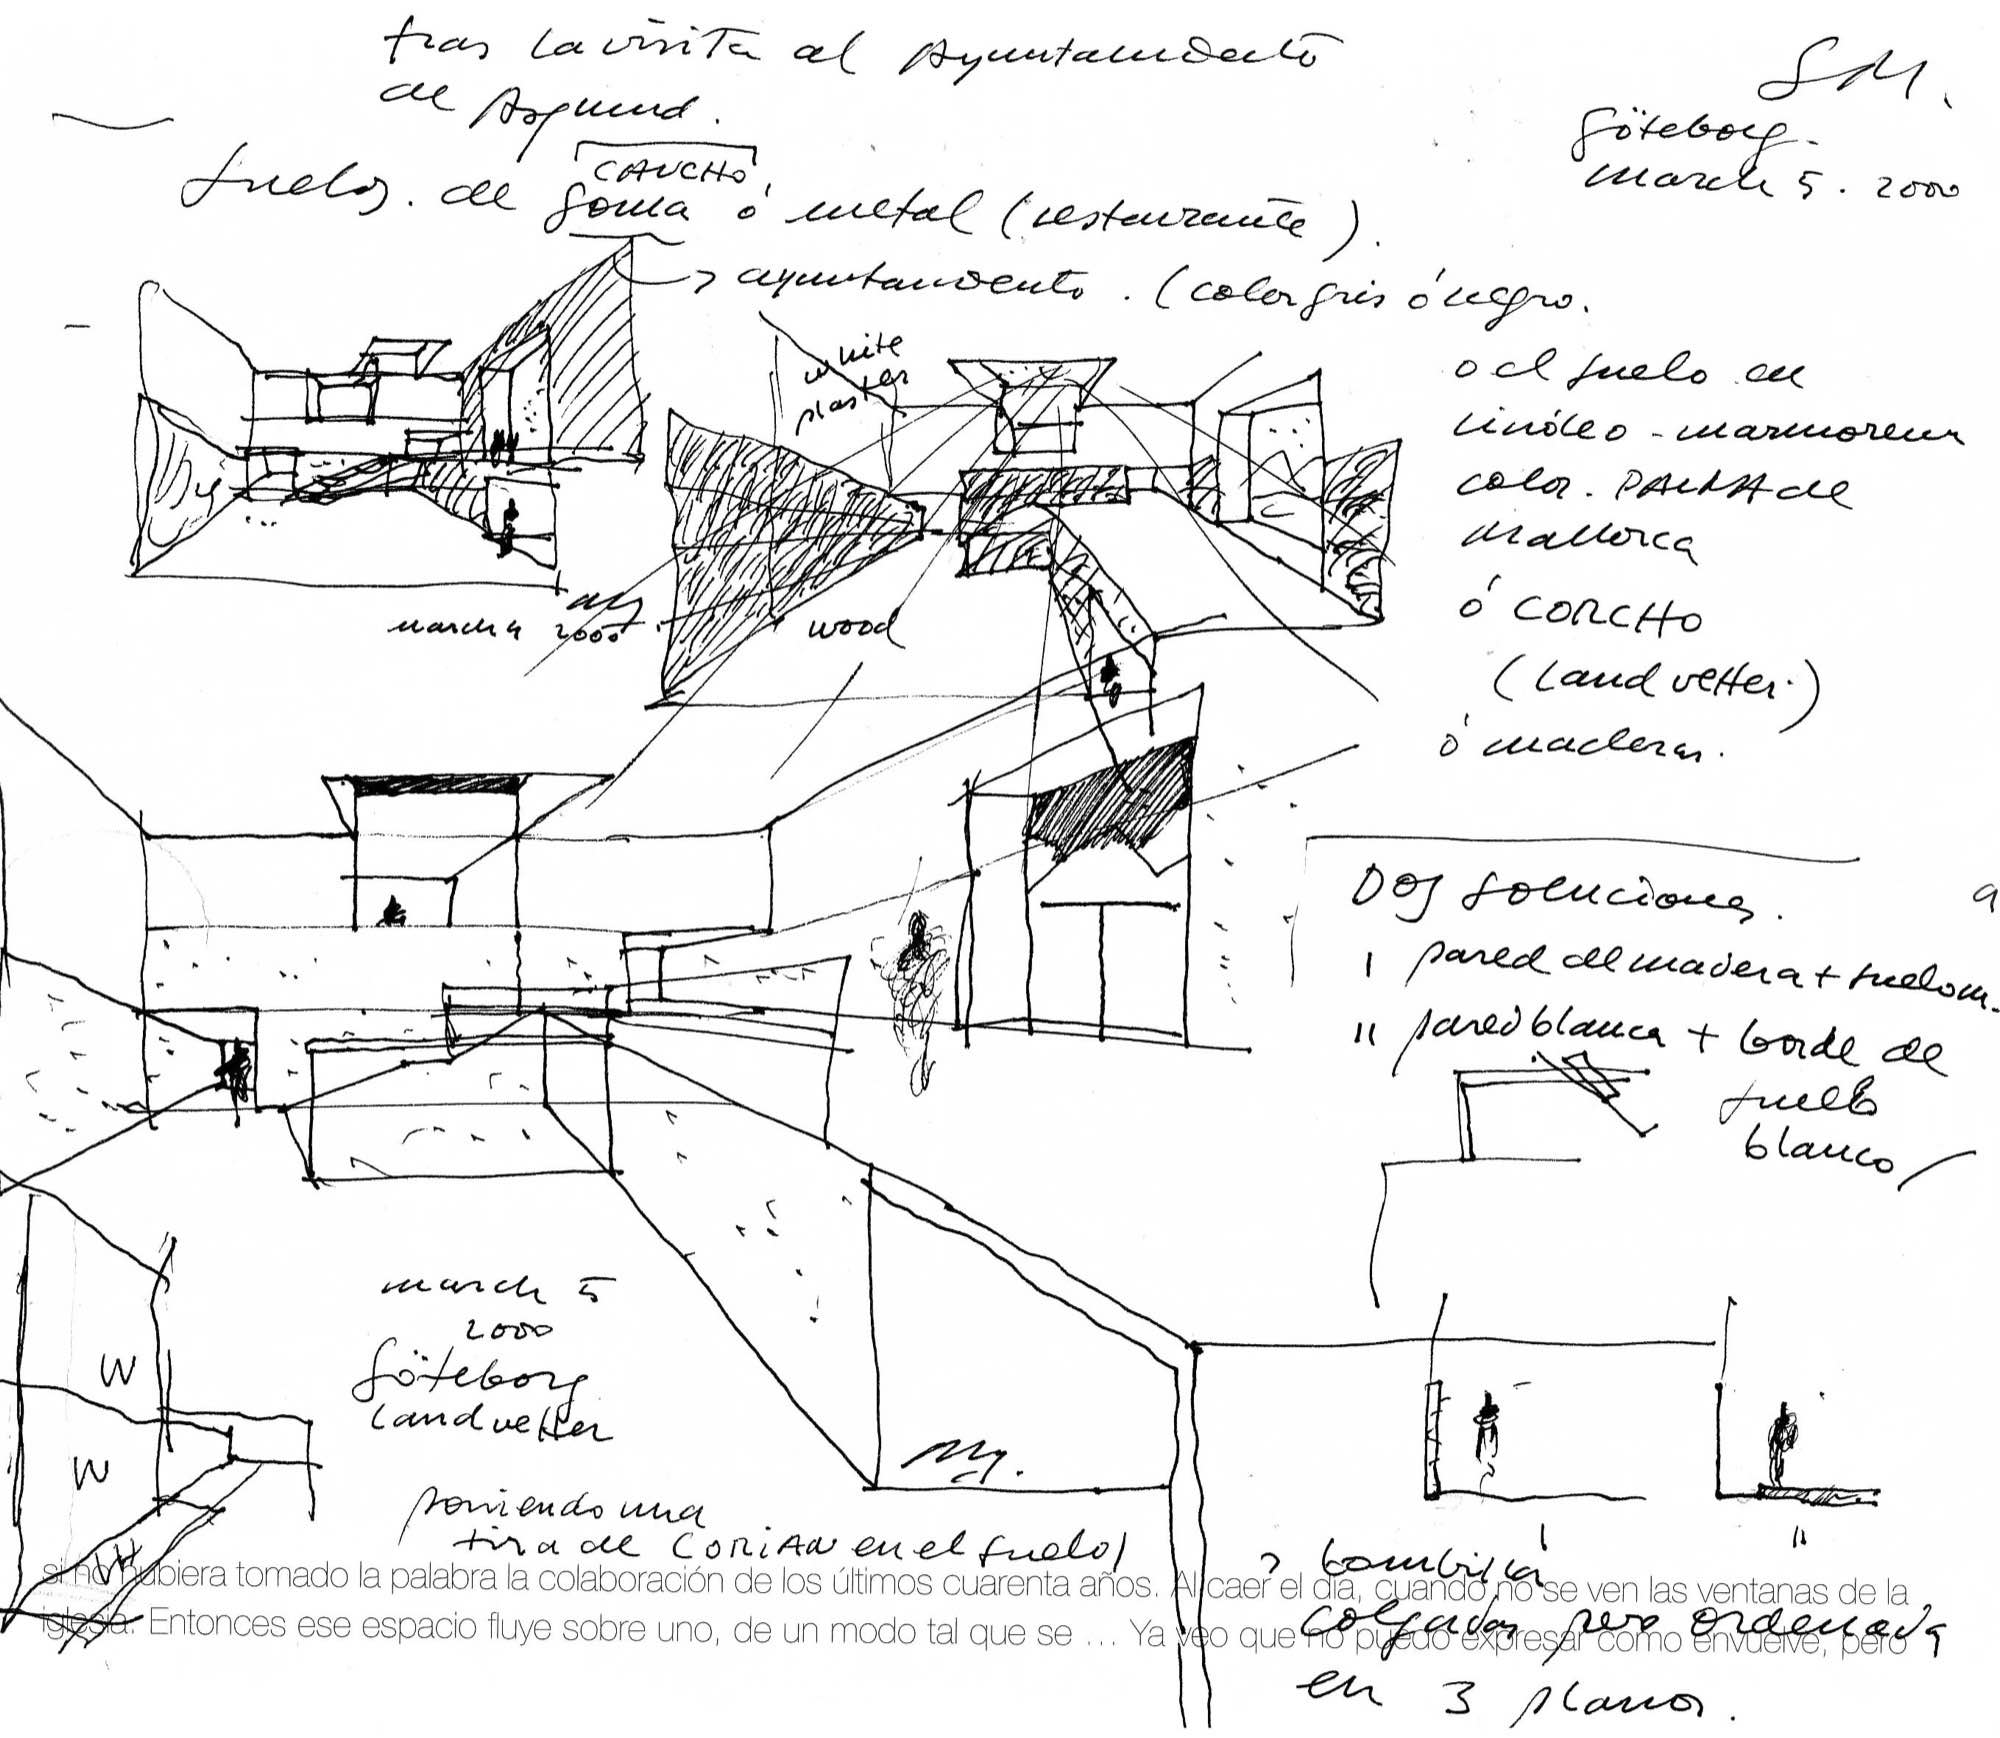 tras la visita al Ayuntamiento
de Asplund.
S M.
Göteborg.
march 5. 2000
CAUCHO,
suelos. de goma ó metal (restaurante).
→ ayuntamiento. (color gris ó negro.
white
plaster
o el suelo en
linóleo - marmoreum
color. PALMA de
Mallorca
ó CORCHO
(Landvetter.)
ó maderas.
march 4 2000
wood
DOS soluciones.
a
I pared de madera + suelo m.
II pared blanca + borde de
suelo
blanco/
march 5
2000
Göteborg
Landvetter
W
W
W
poniendo una
tira de CORIAN en el suelo/
I
II
> bombilla
colgadas pero ordenada
en 3 planos.
si no hubiera tomado la palabra la colaboración de los últimos cuarenta años. Al caer el día, cuando no se ven las ventanas de la
iglesia. Entonces ese espacio fluye sobre uno, de un modo tal que se … Ya veo que no puedo expresar cómo envuelve, pero